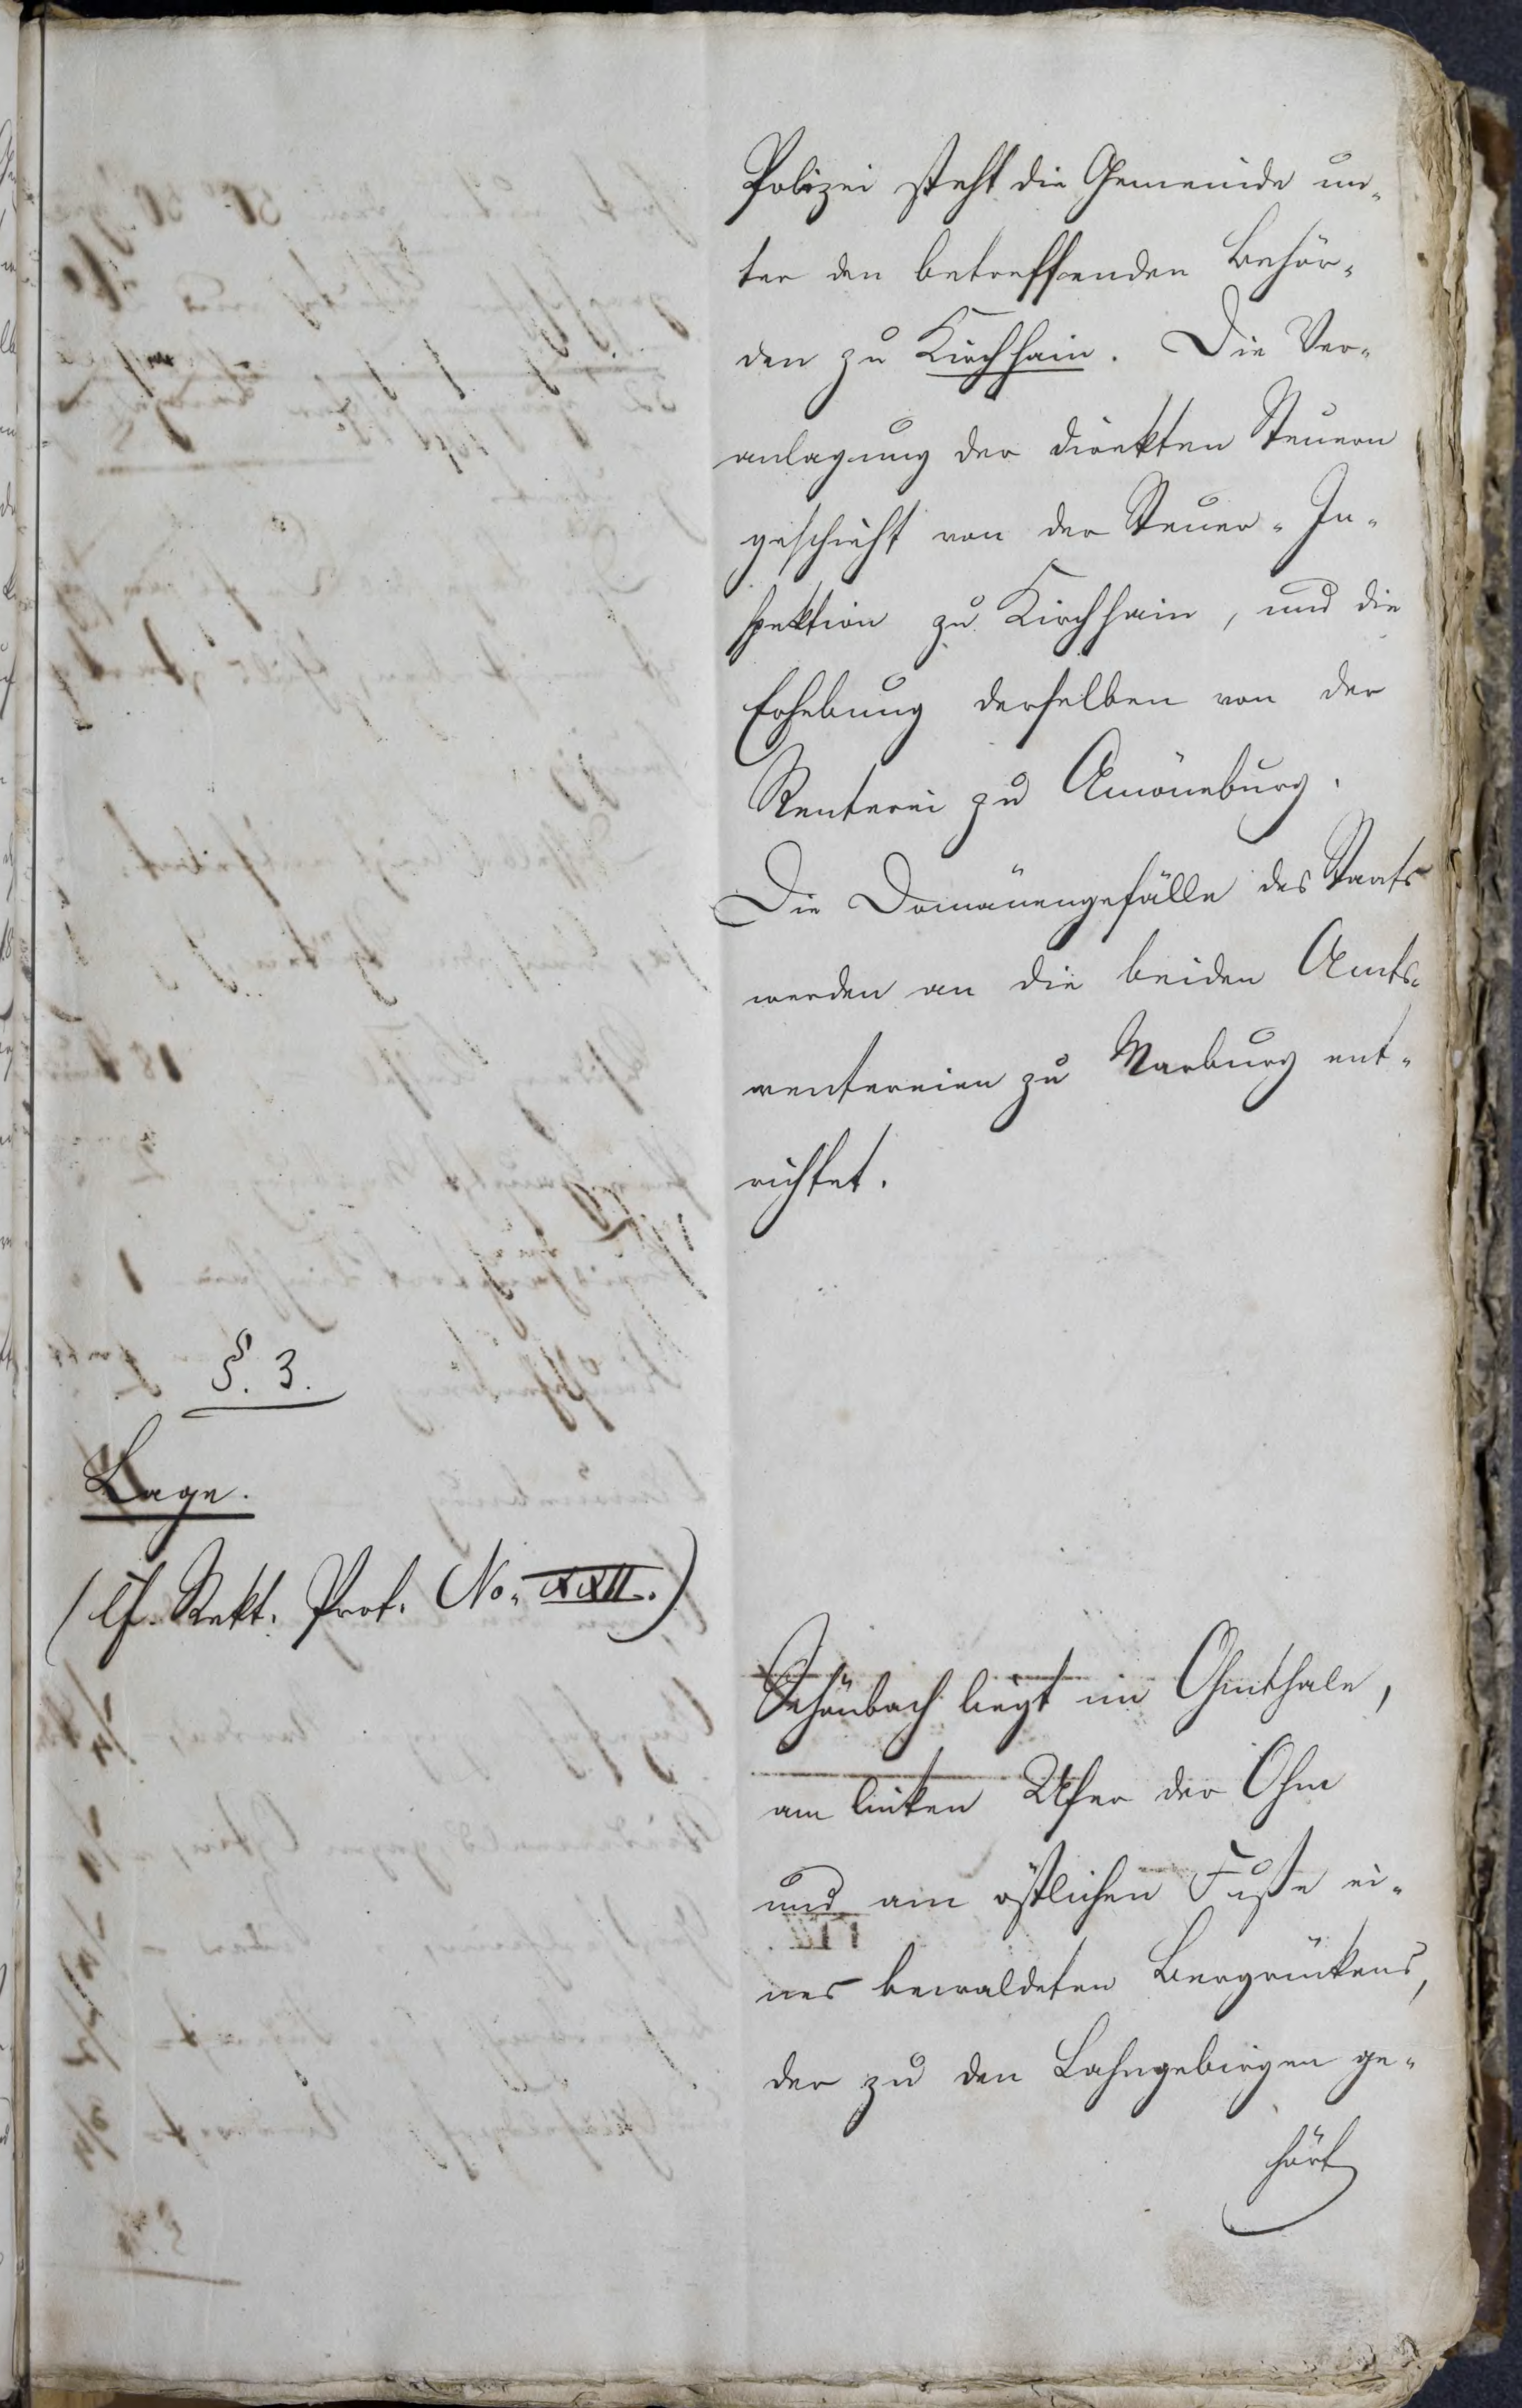 Polizei steht die Gemeinde un-
ter den betreffenden Behör-
den zu Kirchhain. Die Ver-
anlagung der direkten Steuern
geschieht von der Steuer-In-
spektion zu Kirchhain, und die
Erhebung derselben von der
Renterei zu Amöneburg.
Die Domänengefälle des Staats
werden an die beiden Amts-
rentereien zu Marburg ent-
richtet.
§. 3.
Lage.
(cf. Rekt. Prot. No. XXII.)
Schönbach liegt im Ohmthale,
am linken Ufer der Ohm
und am östlichen Fuße ei-
nes bewaldeten Bergrückens,
der zu den Lahngebirgen ge-
hört